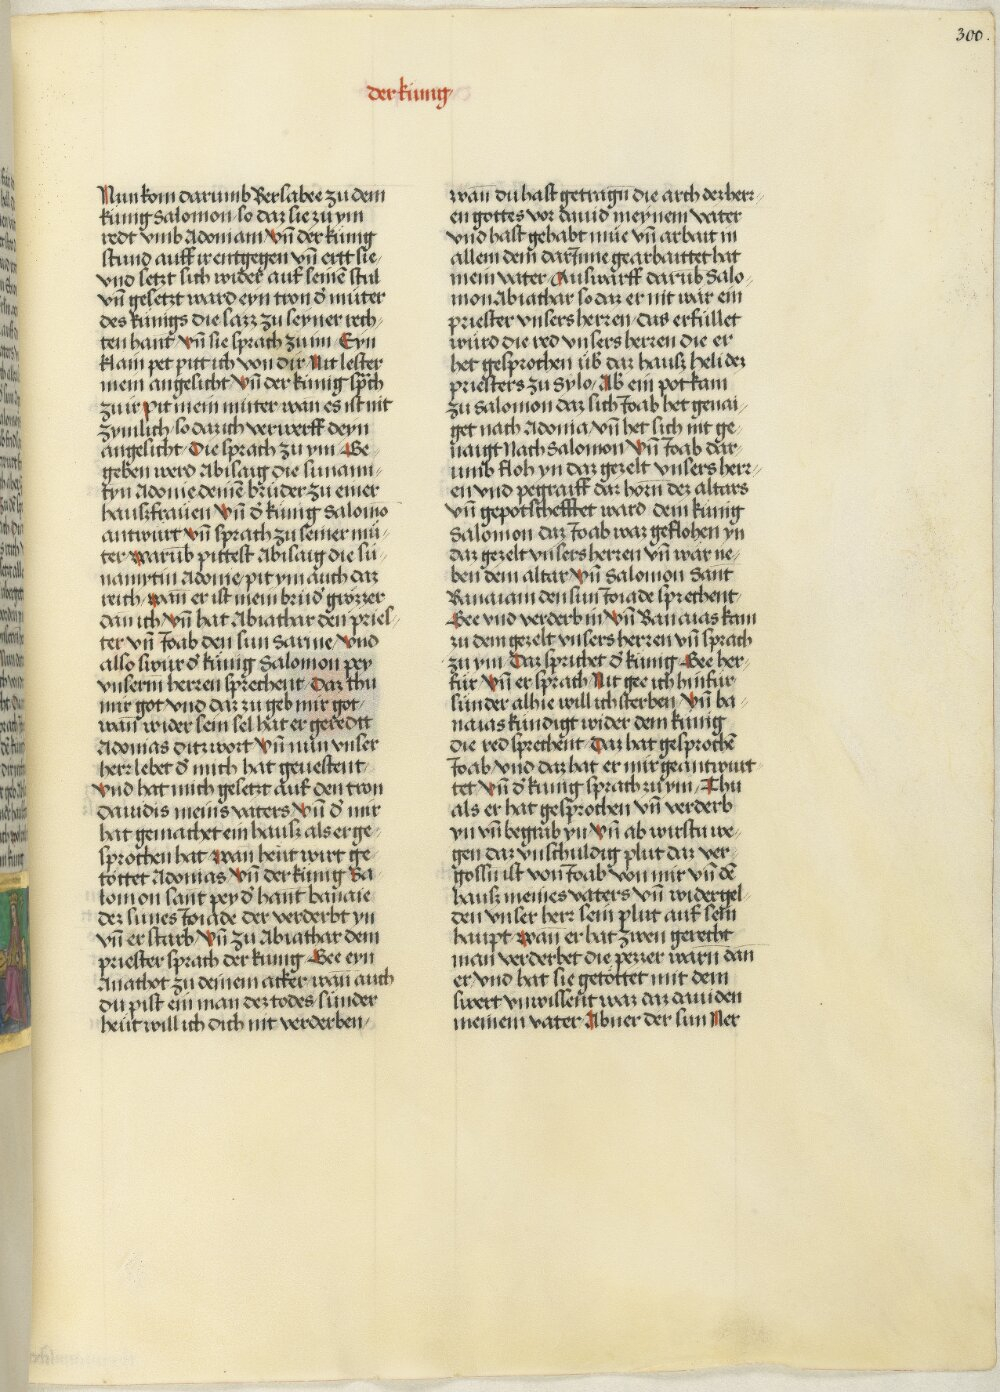 300.
der kunig
Nun kom darumb Bersabee zu dem
kunig Salomon so daz sie zu ym
redt vmb Adoniam Vn̄ der kunig
stund auff ir entgegen vn̄ ertt sie/
vnd setzt sich wider auf seinē stul
vn̄ gesetzt ward eyn tron d̄ muter
des kunigs die sazz zu seyner rech/
ten hant Vn̄ sie sprach zu im Eyn
klain pet pitt ich von dir/ Nit lester
mein angesicht Vn̄ der kunig sp̄ch
zu ir Pit mein muter wan es ist nit
zymlich/ so daz ich verwerff deyn
angesicht/ Die sprach zu ym/ Ge/
geben werd Abisaig die sunami/
tyn Adonie deinē bruder zu einer
hauszfrauen Vn̄ d̄ kunig Salomo
antwurt Vn̄ sprach zu seiner mu/
ter Warūb pittest Abisaig die su/
namytin Adonie/ pit ym auch daz
reich/ Wan̄ er ist mein brud̄ grozzer
dan ich/ Vn̄ hat Abiathar den pries/
ter vn̄ Joab den sun Saruie/ Vnd
also swur d̄ kunig Salomon pey
vnserm herren sprechent/ Daz thu
mir got vnd daz zu geb mir got/
wan̄ wider sein sel hat er geredtt
Adonias ditz wort Vn̄ nun vnser
herr lebet d̄ mich hat geuestent/
Vnd hat mich gesetzt auf den tron
dauidis meins vaters/ Vn̄ d̄ mir
hat gemachet ein hausz als er ge/
sprochen hat Wan heut wirt ge/
tottet Adonias/ Vn̄ der kunig Sa/
lomon sant pey d̄ hant banaie
dez sunes Joiade der verderbt yn
vn̄ er starb/ Vn̄ zu Abiathar dem
priester sprach der kunig/ Gee eyn
Anathot zu deinem acker wan auch
du pist ein man dez todes sunder
heut will ich dich nit verderben/
wan̄ du hast getragn die arch dez herr/
en gottes vor dauid meynem vater
vnd hast gehabt mue vn̄ arbait in
allem dem darynne gearbaittet hat
mein vater/ Auswarff darūb Salo/
mon Abiathar so daz er nit war ein
priester vnsers herren/ das erfullet
wurd die red vnsers herren die er
het gesprochen ub̄ daz hausz Heli dez
priesters zu Sylo/ Ab ein pot kam
zu Salomon daz sich Joab het genai/
get nach Adonia/ vn̄ het sich nit ge/
naigt Nach Salomon Vn̄ Joab dar/
umb floh yn daz gezelt vnsers herr/
en vnd pegraiff daz horn dez altars
Vn̄ gepotschefftet ward dem kunig
Salomon daz Joab waz geflohen yn
daz gezelt vnsers herren vn̄ war ne/
ben dem altar/ Vn̄ Salomon Sant
Banaiam den sun Joiade sprechent/
Gee vnd verderb in/ Vn̄ Banaias kam
zu dem gezelt vnsers herren vn̄ sprach
zu ym Daz sprichet d̄ kunig Gee her/
fur/ Vn̄ er sprach Nit gee ich hinfur
sunder alhie will ich sterben Vn̄ ba/
naias kundigt wider dem kunig
die red sprechent/ Daz hat gesprochē
Joab/ vnd daz hat er mir geantwurt/
tet/ Vn̄ d̄ kunig sprach zu ym/ Thu
als er hat gesprochen vn̄ verderb
yn vn̄ begrab yn/ Vn̄ ab wirstu we/
gen daz vnschuldig plut daz ver/
gossn̄ ist von Joab von mir vn̄ dē
hausz meines vaters vn̄ widergel/
den vnser herr sein plut auf sein
haupt Wan̄ er hat zwen gerecht
man verderbet die pezzer warn dan
er/ vnd hat sie getottet mit dem
swert vnwissent waz daz dauiden
meinem vater Abner der sun Ner